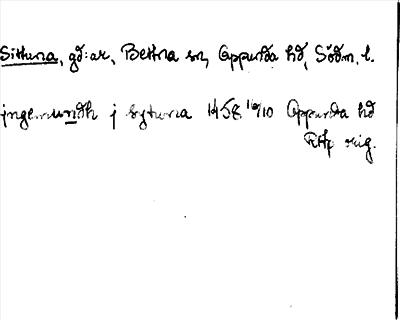 Sittuna, gd:ar, Bettna sn, Oppunda hd, Södm. l.
jngemundh j sytuna 1458 16/10 Oppunda hd
RAp orig.